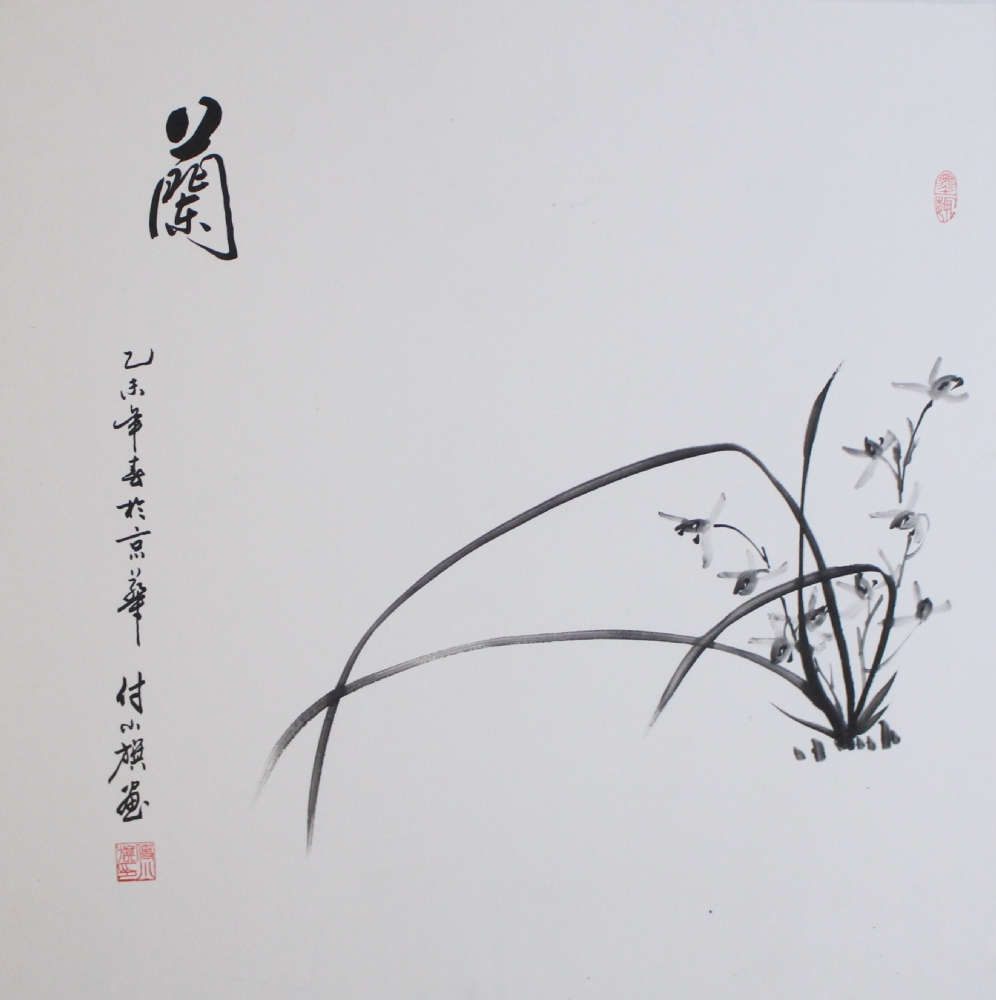 蘭
乙未年春於京華 付小旗画